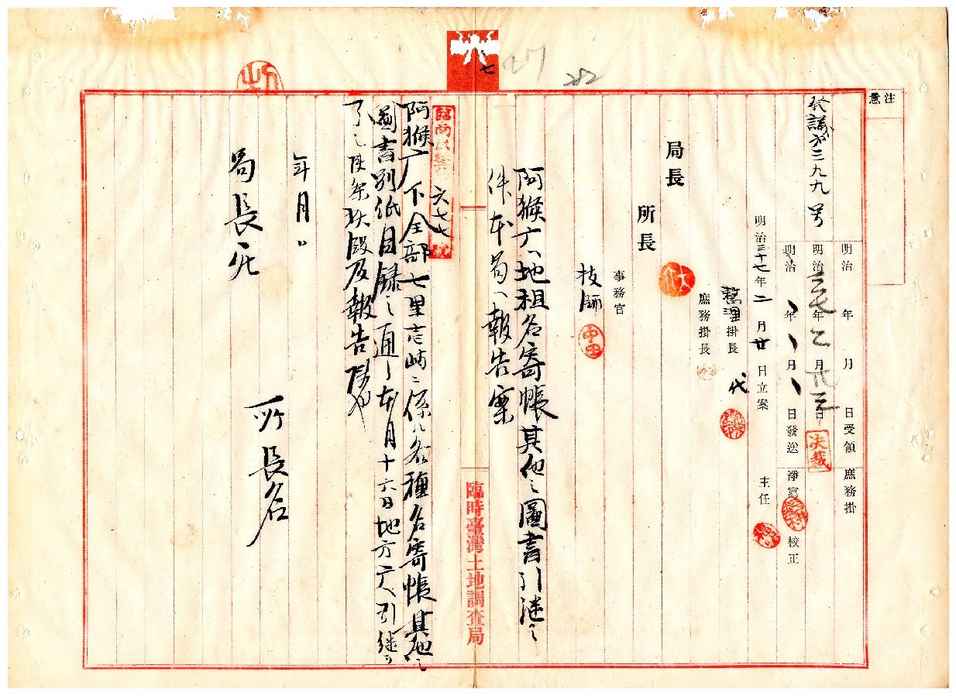 注意
發議第三九九号
明治 年 月 日受領 庶務掛
明治三七年二月廿三日 決裁
明治 年 月 日發送 淨寫 校正
明治三十七年二月廿日立案 主任
整理掛長 代
庶務掛長
局長
所長
事務官
技師 中田
阿猴廳ヘ地租名寄帳其他之圖書引継之
件本局ヘ報告案
臺灣土地調查局
臨時
六七七
阿猴廳下全部七里 ニ係ル各種名寄帳其他之
圖書別紙目錄之通リ本月十六日地方廳ヘ引継
了 此段及報告候也
年月日
所長名
局長宛
27